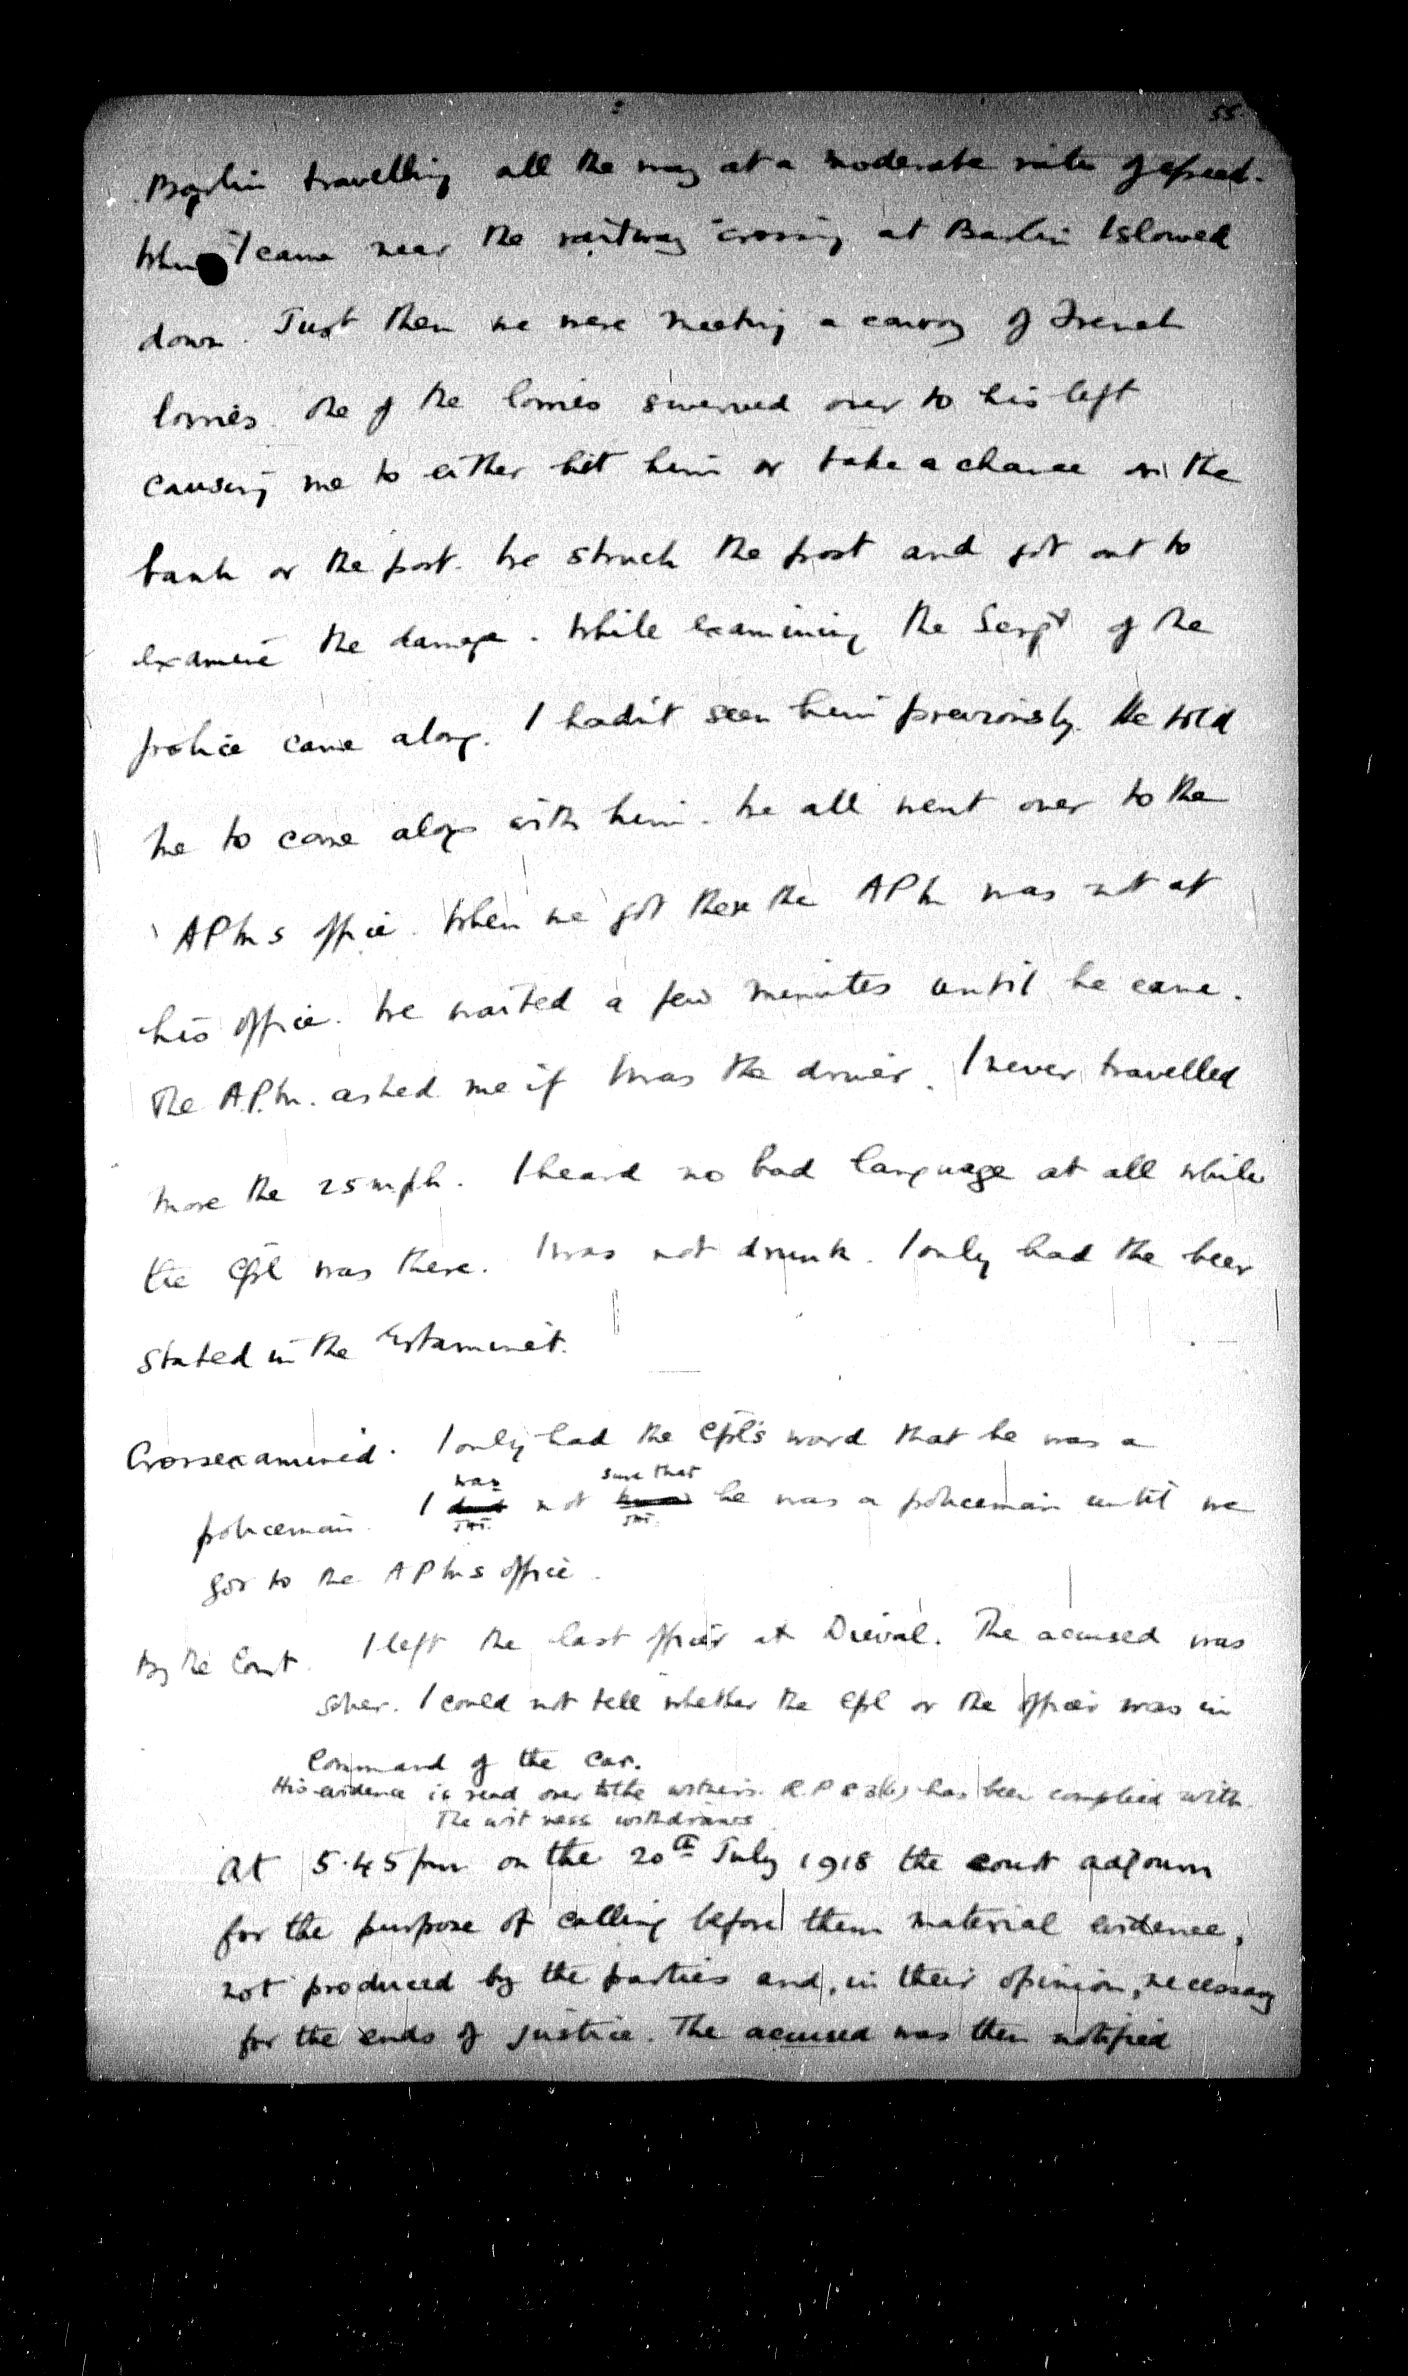 55
Barlin travelling all the way at a moderate rate of speed.
When I came near the railway crossing at Barlin I slowed
down. Just then we were meeting a convoy of French
lorries. One of the lorries swerved over to his left
causing me to either hit him or take a chance on the
bank or the post. We struck the post and got out to
examine the damage. While examining the Sergt of the
police came along. I hadn't seen him previously. He told
me to come along with him. We all went over to the
APMs office. When we got there the APM was not at
his office. We waited a few minutes until he came.
The A.P.M. asked me if I was the driver. I never travelled
more the 25 mph. I heard no bad language at all while
the Cpl was there. I was not drunk. I only had the beer
stated in the Estaminet.
Crossexamined. I only had the Cpl's word that he was a
was sure that
policeman. I did not know he was a policeman until we
got to the APMs office.
By the Court. I left the last officer at Dieval. The accused was
sober. I could not tell whether the Cpl or the officer was in
Command of the car.
His evidence is read over to the witness. R.P. 83(B) has been complied with.
The witness withdraws.
At 5.45 pm on the 20th July 1918 the court adjourn
for the purpose of calling before them material evidence,
not produced by the parties and, in their opinion, necessary
for the ends of justice. The accused was then notified